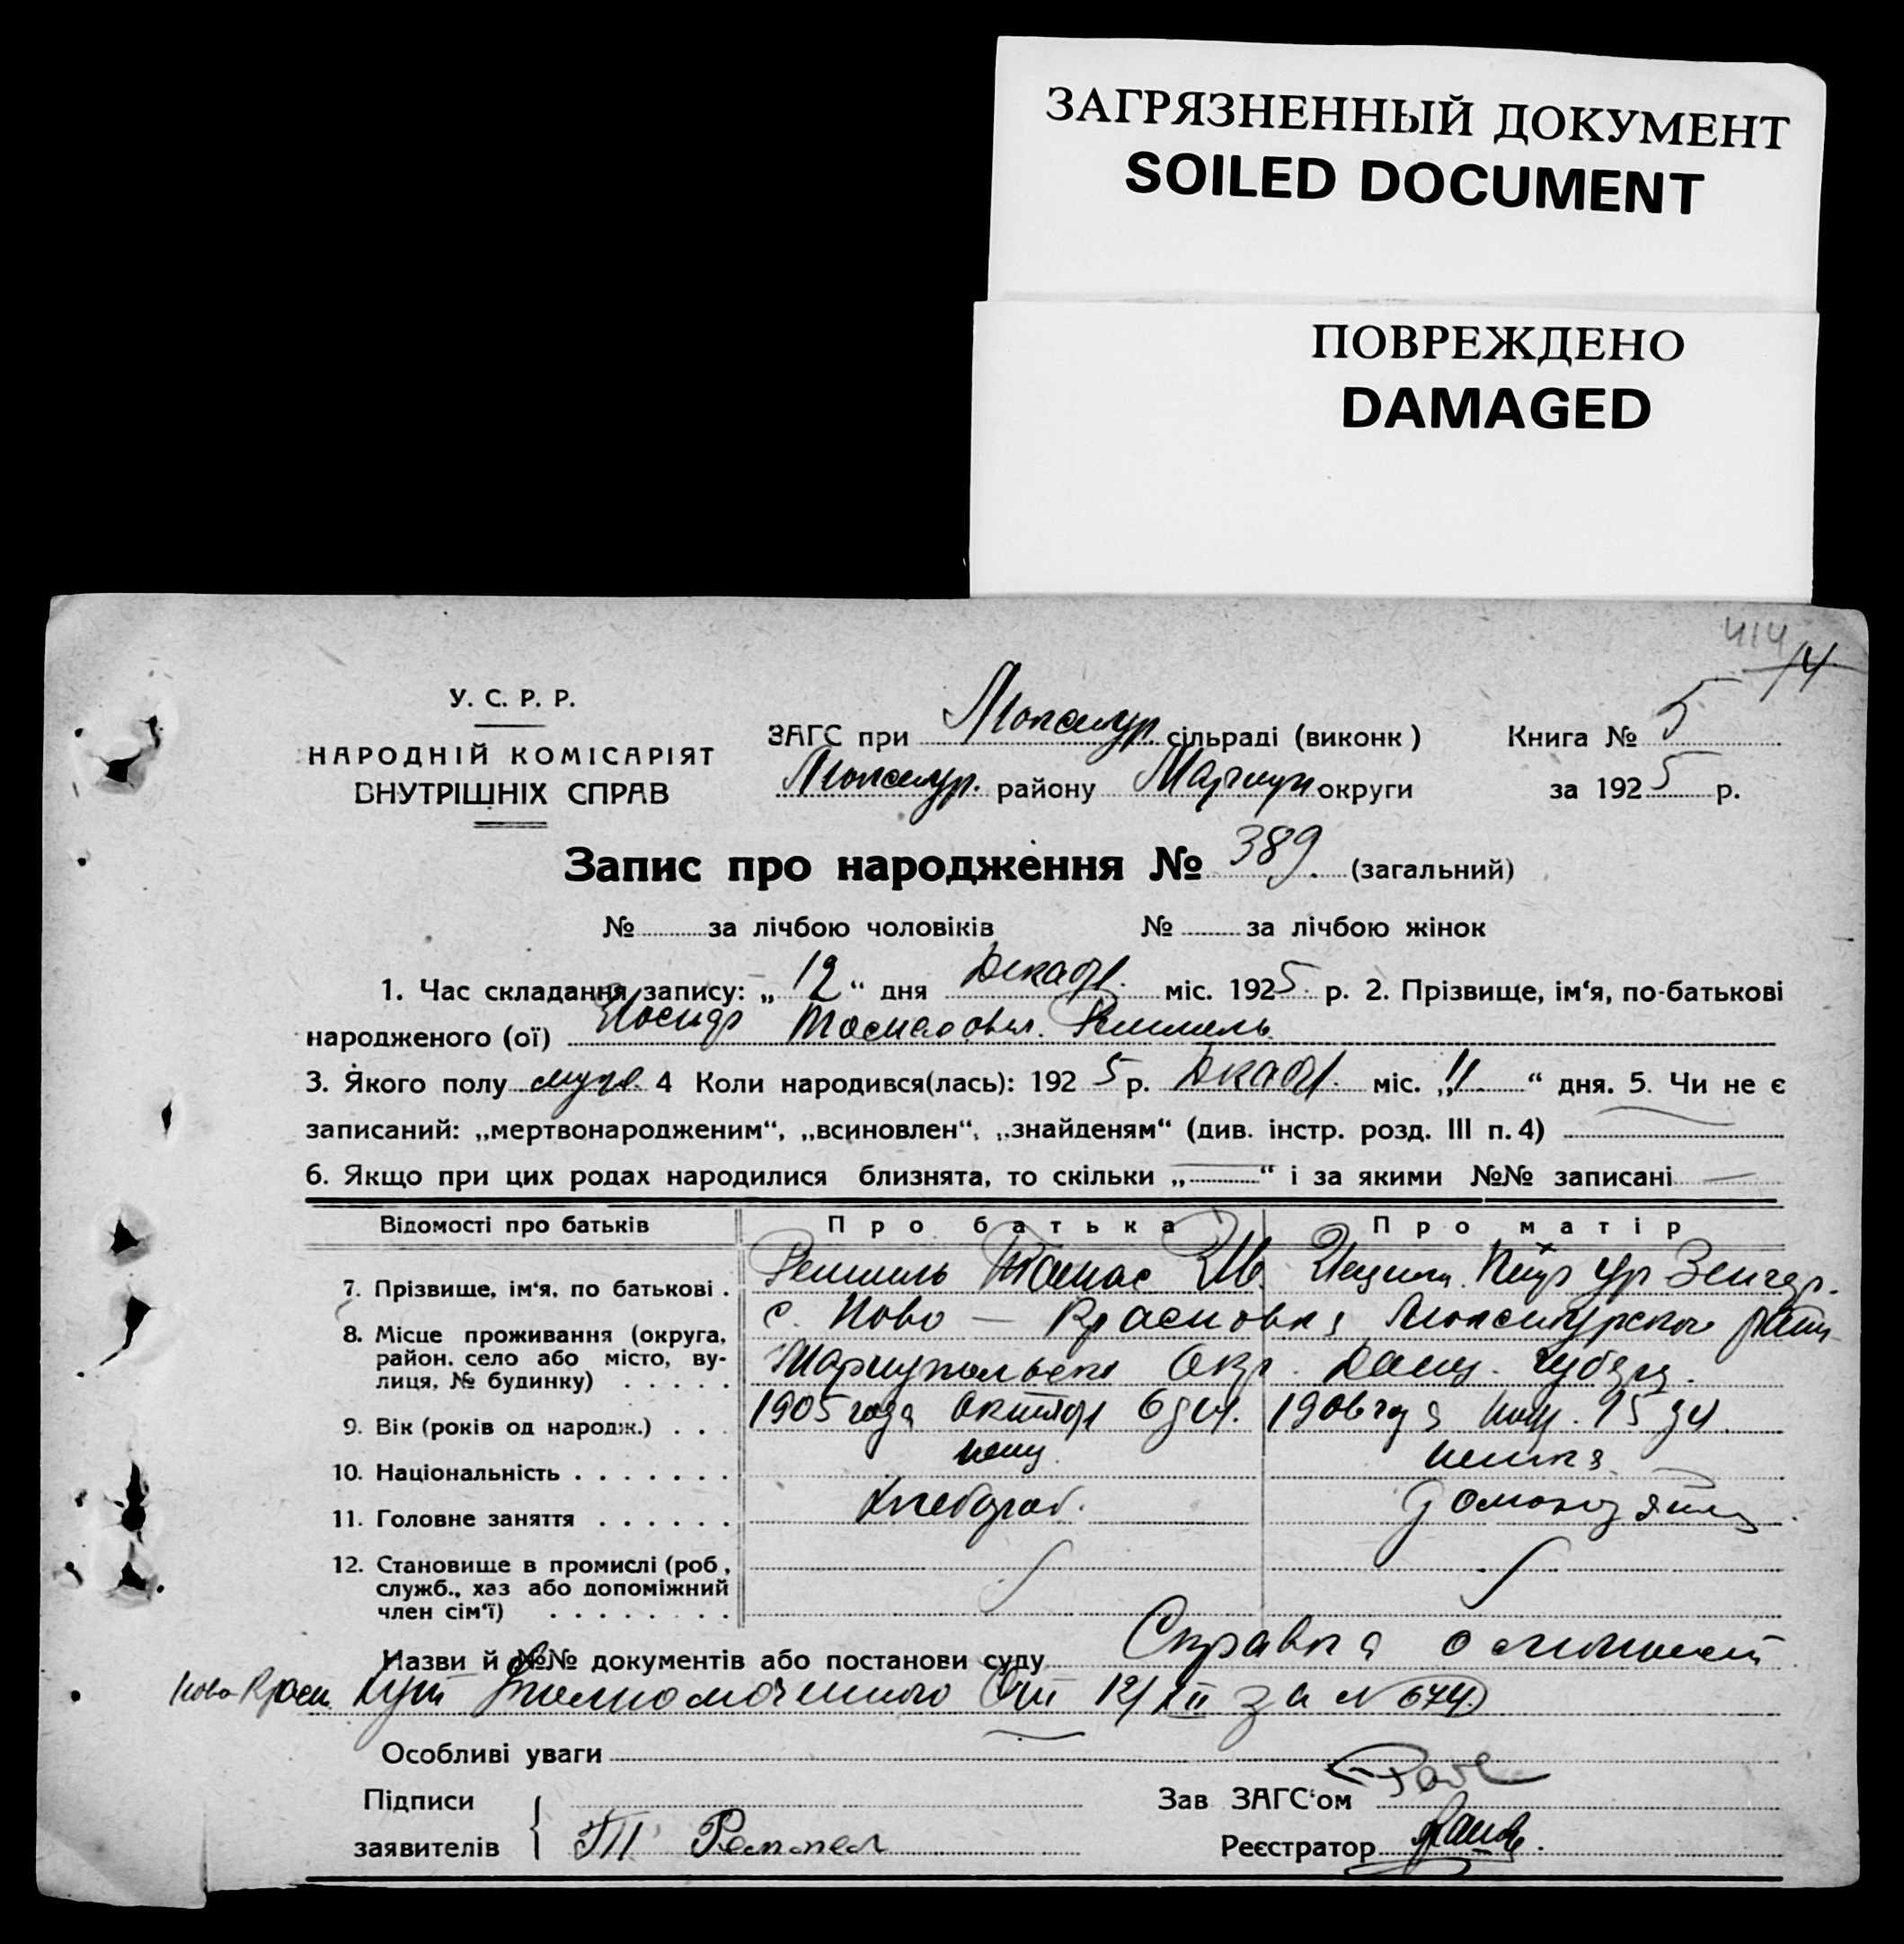 ЗАГРЯЗНЕННЫЙ ДОКУМЕНТ
SOILED DOCUMENT
ПОВРЕЖДЕНО
DAMAGED
414
14
У. С. Р. Р.
НАРОДНІЙ КОМІСАРІЯТ
ВНУТРІШНІХ СПРАВ
ЗАГС при сільраді (виконк) Книга № 5
району Мариуп округи за 1925 р.
Запис про народження № 389. (загальний)
№ за лічбою чоловіків № за лічбою жінок
1. Час складання запису: „12“ дня Декабр. міс. 1925 р. 2. Прізвище, ім‘я, по-батькові
народженого (ої)
3. Якого полу муж. 4 Коли народився(лась): 1925 р. Декабр. міс. „11“ дня. 5. Чи не є
записаний: „мертвонародженим“, „всиновлен“, „знайденям“ (див. інстр. розд. III п. 4)
6. Якщо при цих родах народилися близнята, то скільки „—“ і за якими №№ записані —
Відомості про батьків Про батька Про матір
7. Прізвище, ім‘я, по батькові . Томас
8. Місце проживання (округа, с. Ново — Красновка
район, село або місто, ву-
лиця, № будинку) . . . . . Мариупольск Окр.
9. Вік (років од народж.) . . . 1905 года Октябр 6 дн. 1906 года 15 дн.
10. Національність . . . . . . . нем. немка
11. Головне заняття . . . . . . Хлебороб. домохоз
12. Становище в промислі (роб,
служб., хаз або допоміжний
член сім‘ї) . . . . . . . .
Назви й №№ документів або постанови суду Справка о личност
Ново-Красн. Уполномоченного От 12/XII за № 674.
Особливі уваги
Підписи Зав ЗАГС‘ом
заявителів Т Реєстратор